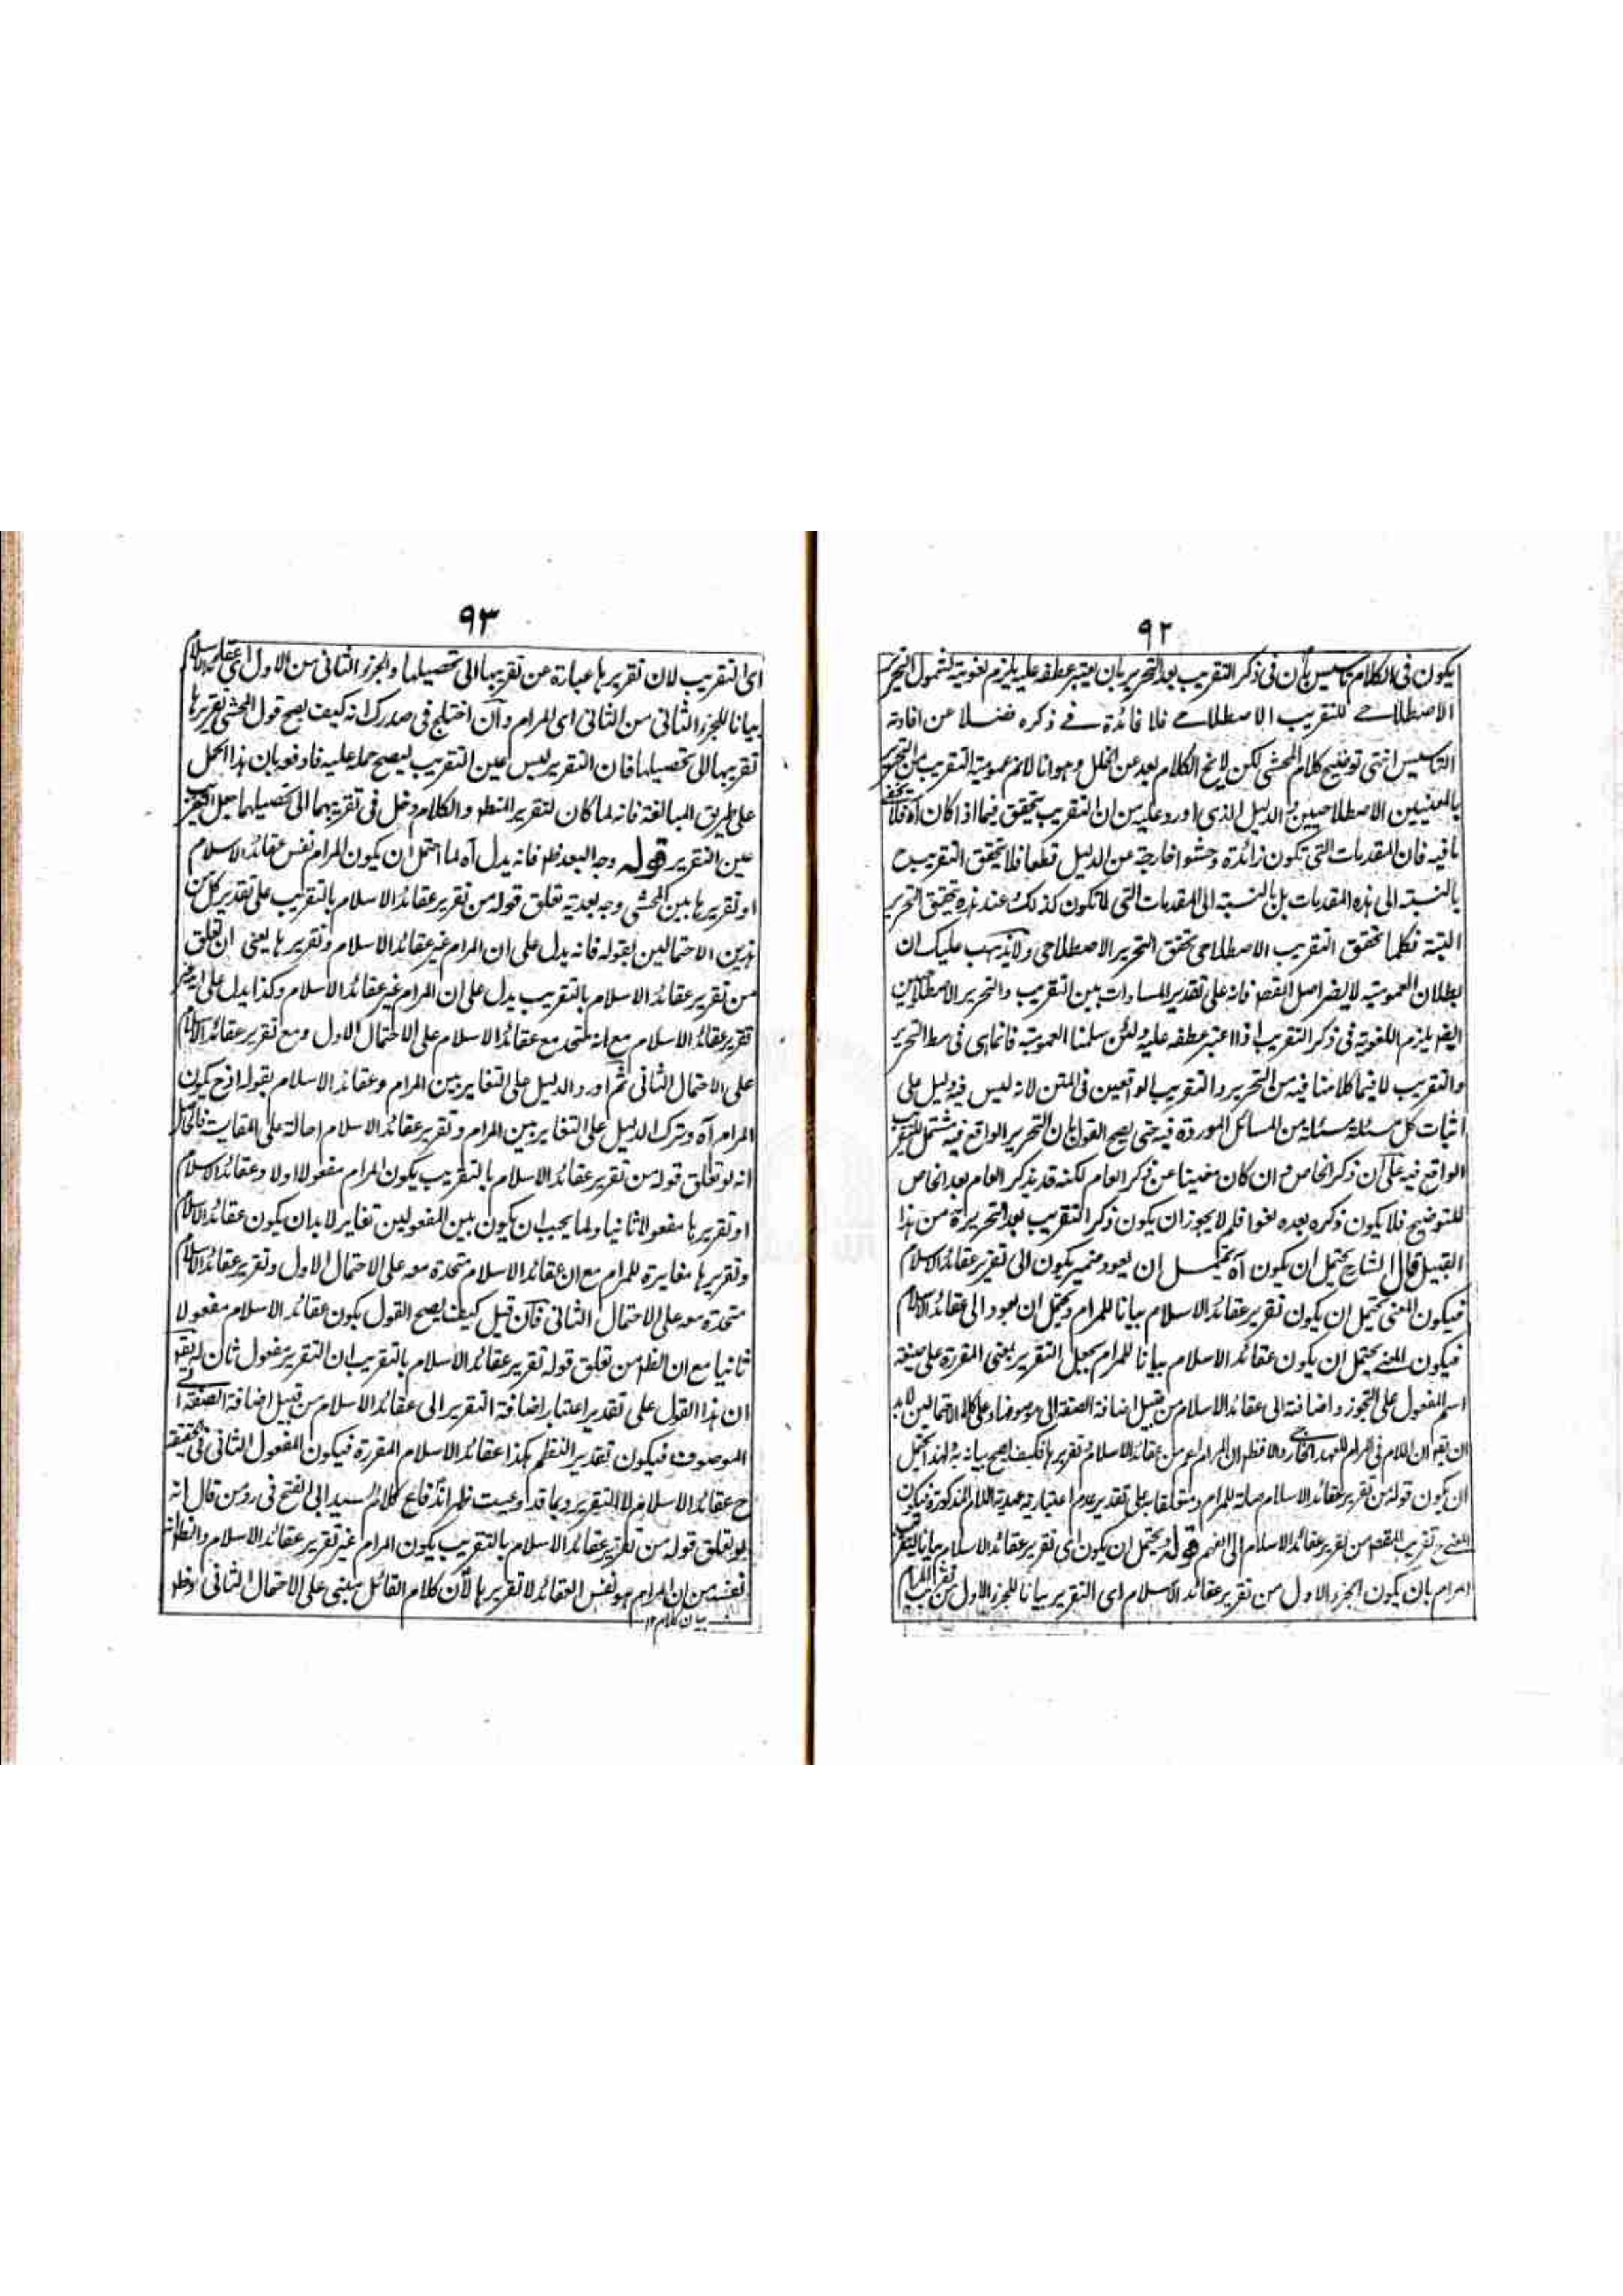 ٩٢
يكون فى الكلام تاسيس بان فى ذكر التقريب بعد التحرير بان يعتبر عطفه عليه يلزم لغويته لشمول التحرير
الاصطلاحے للتقريب الاصطلاحے فلا فائدة فے ذكره فضلا عن افادته
التاسيس انتهى توضيح كلام المحشى لكن لا يخ الكلام بعد عن الخلل وهو انا لا نم عمومية التقريب من التحرير
بالمعنيين الاصطلاحيين والدليل الذى اورد عليه من ان التقريب يتحقق فيما اذا كان آه فلا يخفى
ما فيه فان المقدمات التى تكون زائدة وحشوا خارجة عن الدليل قطعا فلا يتحقق التقريب ح
بالنسبة الى هذه المقدمات بل بالنسبة الى المقدمات التى لا تكون كذلك وعند هذه يتحقق التحرير
البتة فكلما تحقق التقريب الاصطلاحى تحقق التحرير الاصطلاحى ولا يذهب عليك ان
بطلان العمومية لا يضر اصل المقصد فانه على تقدير المساوات بين التقريب والتحرير الاصطلاحيين
ايضا يلزم اللغوية فى ذكر التقريب اذا اعتبر عطفه عليه ولئن سلمنا العمومية فانما هى فى مط التحرير
والتقريب لا فيما كلامنا فيه من التحرير والتقريب الواقعين فى المتن لانه ليس فيه دليل على
اثبات كل مسئلة مسئلة من المسائل الموردة فيه حتى يصح القول بان التحرير الواقع فيه مشتمل للتقريب
الواقع فيه على ان ذكر الخاص وان كان مغنيا عن ذكر العام لكنه قد يذكر العام بعد الخاص
للتوضيح فلا يكون ذكره بعده لغوا فلم لا يجوز ان يكون ذكر التقريب بعد التحرير من هذا
القبيل قال الشارح يحتمل ان يكون آه يحتمل ان يعود ضمير يكون الى تقرير عقائد الاسلام
فيكون المعنى يحتمل ان يكون تقرير عقائد الاسلام بيانا للمرام ويحتمل ان يعود الى عقائد الاسلام
فيكون المعنے يحتمل ان يكون عقائد الاسلام بيانا للمرام بجعل التقرير بمعنى المقررة على صيغة
اسم المفعول على التجوز واضافته الى عقائد الاسلام من قبيل اضافة الصفة الى موصوفها وعلى كلا الاحتمالين لابد
ان يقم ان اللام فى المرام للعهد الخارجى والا فظم ان المرام اعم من عقائد الاسلام وتقريرها فكيف يصح بيانه به لهذا يحتمل
ان يكون قوله من تقرير عقائد الاسلام صلة للمرام ومتعلقا به على تقدير عدم اعتبارية عهدية اللام المذكورة فيكون
المعنے ح تقريب المقصد من تقرير عقائد الاسلام الى الفهم قوله ويحتمل ان يكون اى تقرير عقائد الاسلام بيانا لتقريب
المرام بان يكون الجزء الاول من تقرير عقائد الاسلام اى التقرير بيانا للجزء الاول من تقريب المرام
٩٣
اى التقريب لان تقريرها عبارة عن تقريبها الى تحصيلها والجزء الثانى من الاول اى عقائد الاسلام
بيانا للجزء الثانى من الثانى اى المرام وان اختلج فى صدرك انه كيف يصح قول المحشى تقريرها
تقريبها الى تحصيلها فان التقرير ليس عين التقريب ليصح حمله عليه فادفعه بان هذا الحمل
على طريق المبالغة فانه لما كان لتقرير المنطق والكلام دخل فى تقريبهما الى تحصيلهما جعل التقريب
عين التقرير قوله وجه البعد ظم فانه يدل آه لما احتمل ان يكون المرام نفس عقائد الاسلام
او تقريرها بين المحشى وجه بعدية تعلق قوله من تقرير عقائد الاسلام بالتقريب على تقدير كل من
هذين الاحتمالين بقوله فانه يدل على ان المرام غير عقائد الاسلام وتقريرها يعنى ان تعلق
من تقرير عقائد الاسلام بالتقريب يدل على ان المرام غير عقائد الاسلام وكذا يدل على انه غير
تقرير عقائد الاسلام مع انه متحد مع عقائد الاسلام على الاحتمال الاول ومع تقرير عقائد الاسلام
على الاحتمال الثانى ثم اورد الدليل على التغاير بين المرام وعقائد الاسلام بقوله اذ ح يكون
المرام آه وترك الدليل على التغاير بين المرام وتقرير عقائد الاسلام احالة على المقايسة فالحاصل
انه لو تعلق قوله من تقرير عقائد الاسلام بالتقريب يكون المرام مفعولا اولا وعقائد الاسلام
او تقريرها مفعولا ثانيا ولما يجب ان يكون بين المفعولين تغاير لابد ان يكون عقائد الاسلام
وتقريرها مغايرة للمرام مع ان عقائد الاسلام متحدة معه على الاحتمال الاول وتقرير عقائد الاسلام
متحدة معه على الاحتمال الثانى فان قيل كيف يصح القول بكون عقائد الاسلام مفعولا
ثانيا مع ان الظم من تعلق قوله تقرير عقائد الاسلام بالتقريب ان التقرير مفعول ثان له يقم
ان هذا القول على تقدير اعتبار اضافة التقرير الى عقائد الاسلام من قبيل اضافة الصفة الے
الموصوف فيكون تقدير النظم هكذا عقائد الاسلام المقررة فيكون المفعول الثانى فى الحقيقة
ح عقائد الاسلام لا التقرير وبما قد وعيت ظهر اندفاع كلام السيد ابى الفتح فى رد من قال انه
لو تعلق قوله من تقرير عقائد الاسلام بالتقريب يكون المرام غير تقرير عقائد الاسلام والظم انه
فعند من ان المرام هو نفس العقائد لا تقريرها لان كلام القائل مبنى على الاحتمال الثانى
بيان كلام ١٢